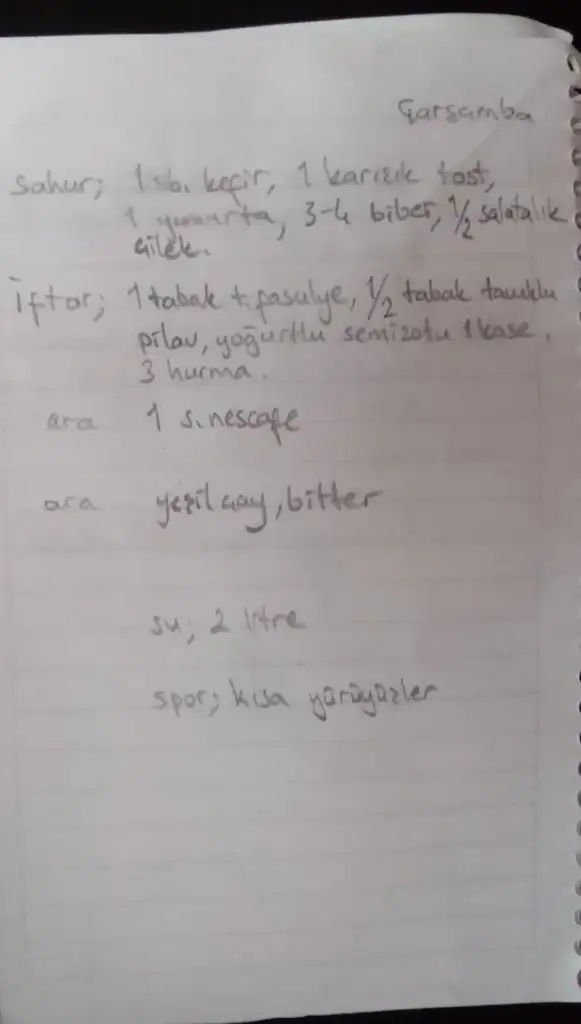 Çarşamba
Sahur; 1 sb. kefir, 1 karışık tost,
1 yumurta, 3-4 biber, 1/2 salatalık
çilek.
İftar; 1 tabak t. fasulye, 1/2 tabak tavuklu
pilav, yoğurtlu semizotu 1 kase.
3 hurma.
ara 1 s. nescafe
ara yeşil çay, bitter
su; 2 litre
spor; kısa yürüyüşler